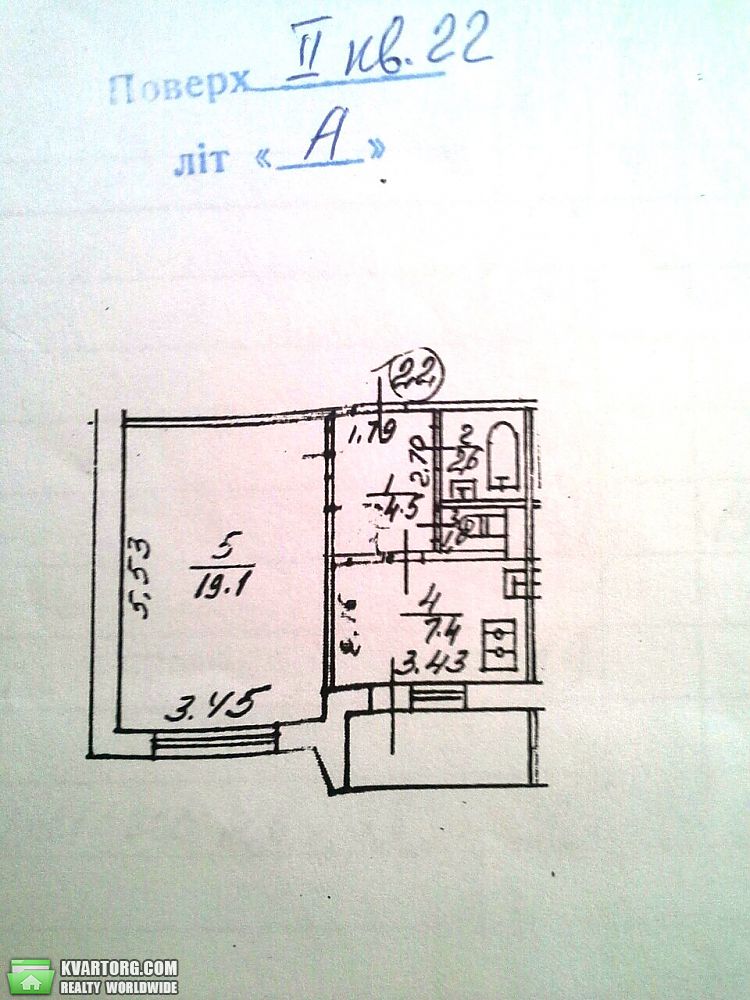 Поверх II кв. 22
літ «А»
22
1.79
2.70
2
2.6
1
4.5
3
5
19.1
5,53
4
7.4
2.16
3.43
3.45
KVARTORG.COM
REALTY WORLDWIDE